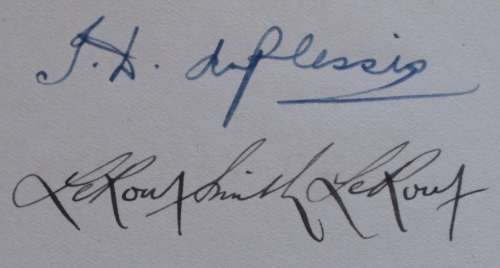 J. D. duPlessis
LeRoux Smith LeRoux